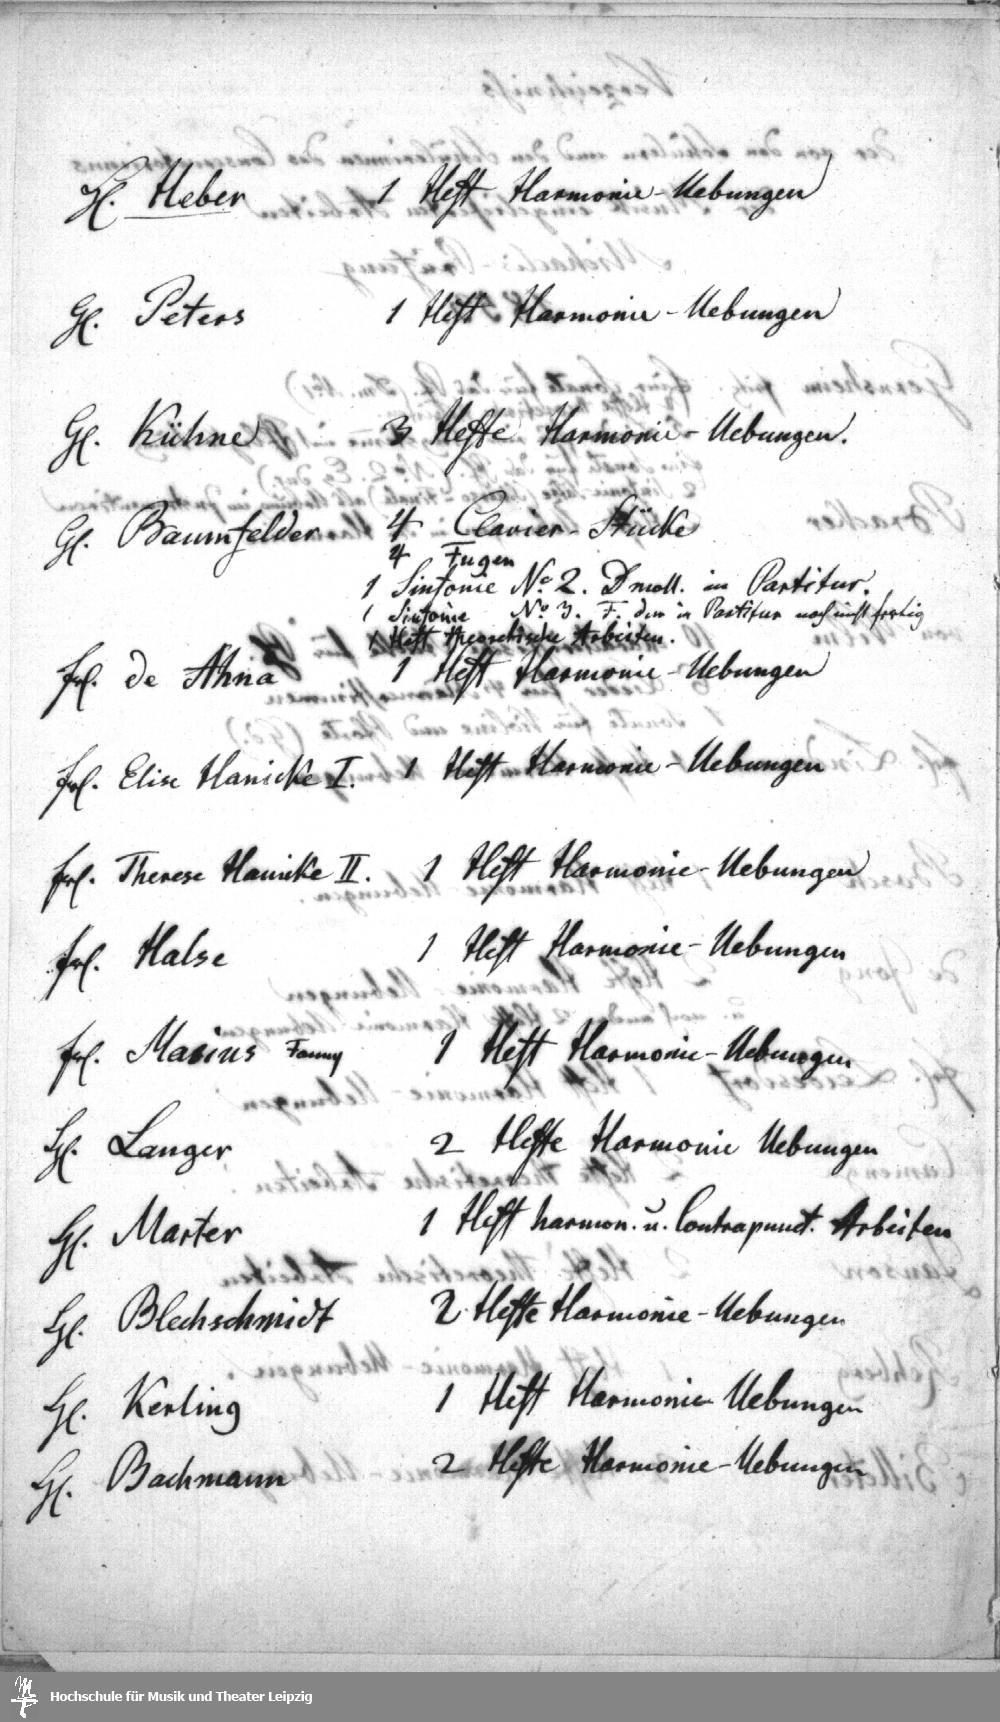 H. Heber 1 Heft Harmonie-Uebungen
H. Peters 1 Heft Harmonie-Uebungen
H. Kühne 3 Hefte Harmonie-Uebungen.
H. Baumfelder 4 Clavier-Stücke
4 Fugen
1 Sinfonie No. 2. Dmoll. in Partitur.
1 Sinfonie No. 3. F dur in Partitur noch nicht fertig
1 Heft theoretische Arbeiten.
Frl. de Ahna 1 Heft Harmonie-Uebungen
Frl. Elise Hanicke I. 1 Heft Harmonie-Uebungen
Frl. Therese Hanicke II. 1 Heft Harmonie-Uebungen
Frl. Halse 1 Heft Harmonie-Uebungen
Frl. Masius Fanny 1 Heft Harmonie-Uebungen
H. Langer 2 Hefte Harmonie Uebungen
H. Marter 1 Heft harmon. u. Contrapunct. Arbeiten
H. Blechschmidt 2 Hefte Harmonie-Uebungen
H. Kerling 1 Heft Harmonie Uebungen
H. Bachmann 2 Hefte Harmonie-Uebungen
Hochschule für Musik und Theater Leipzig